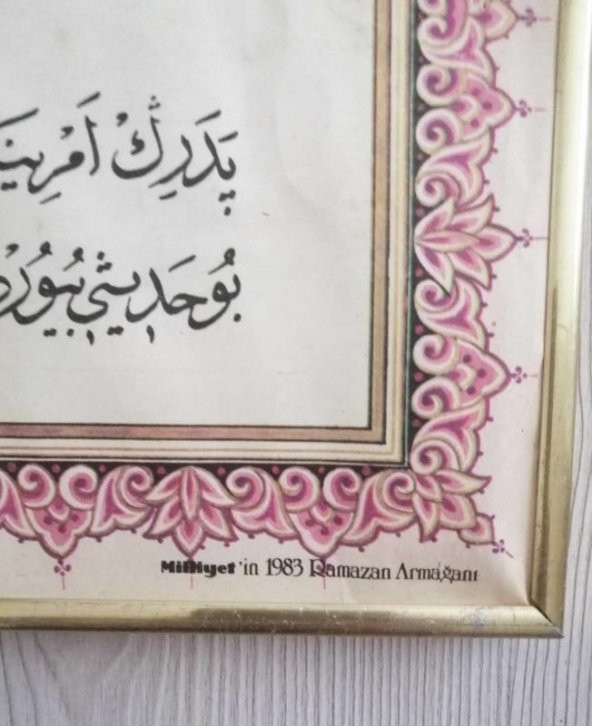 پَدَرِڭ اَمْرِينَ
بُو حَدِيثِي بُيُورُ
Milliyet'in 1983 Ramazan Armağanı